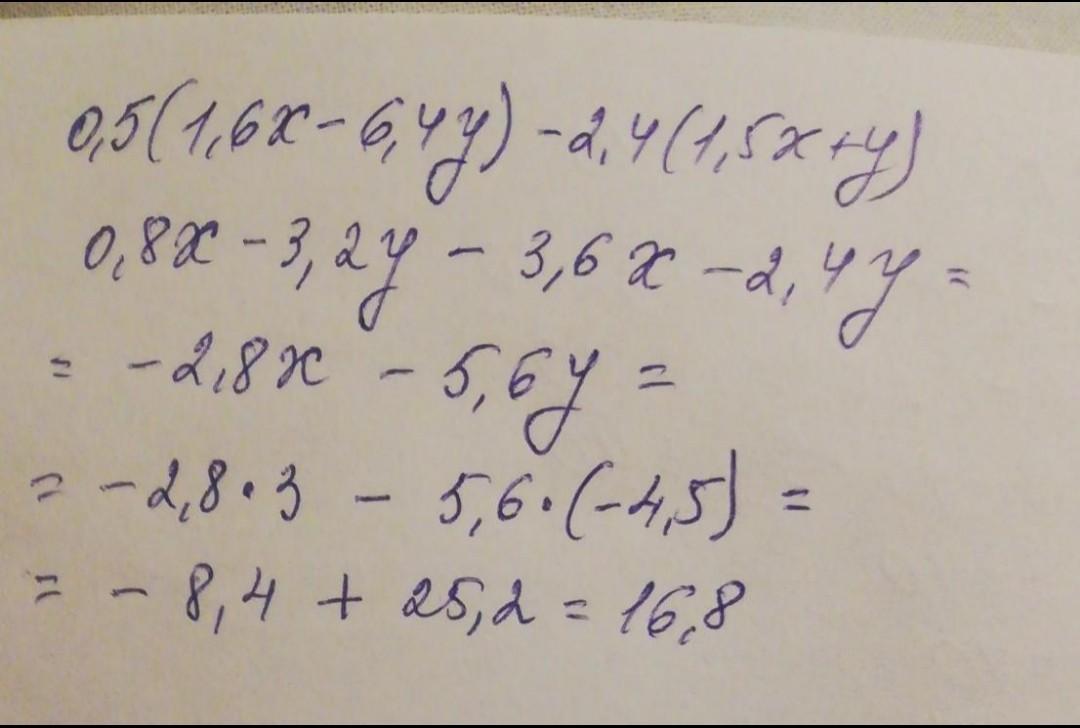 0,5(1,6x-6,4y)-2,4(1,5x+y)
0,8x-3,2y-3,6x-2,4y=
=-2,8x-5,6y=
=-2,8·3-5,6·(-4,5)=
=-8,4+25,2=16,8